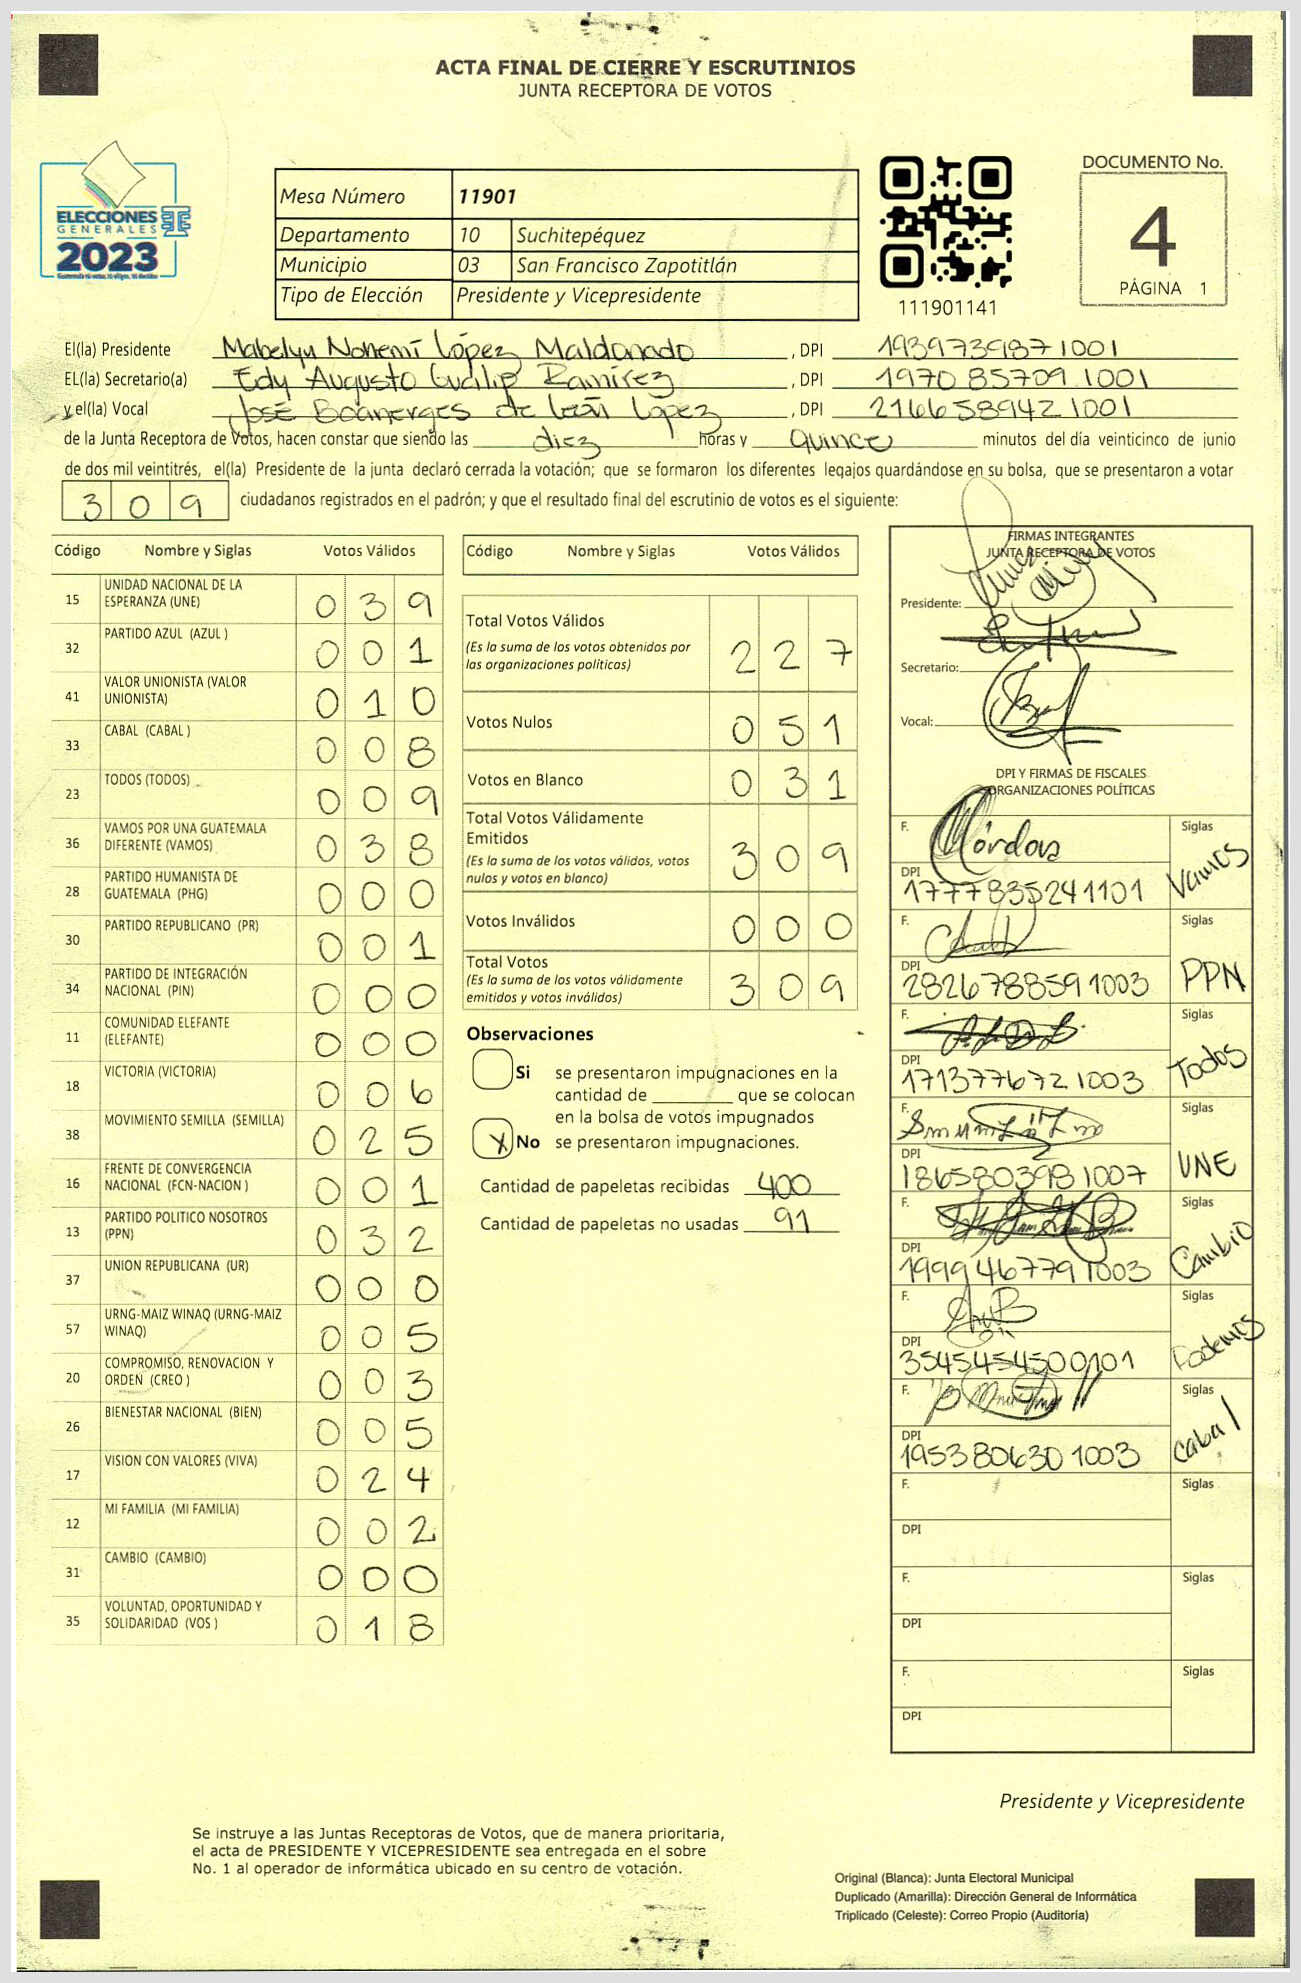 ACTA FINAL DE CIERRE Y ESCRUTINIOS
JUNTA RECEPTORA DE VOTOS
ELECCIONES
GENERALES
2023
Mesa Número 11901
Departamento 10 Suchitepéquez
Municipio 03 San Francisco Zapotitlán
Tipo de Elección Presidente y Vicepresidente
111901141
DOCUMENTO No.
4
PÁGINA 1
El(la) Presidente Mabelyn Nohemí López Maldonado, DPI 1939739871001
EL(la) Secretario(a) Edy Augusto Ramírez, DPI 1970857091001
y el(la) Vocal José Boanerges de León López, DPI 2166589421001
de la Junta Receptora de Votos, hacen constar que siendo las diez horas y quince minutos del día veinticinco de junio
de dos mil veintitrés, el(la) Presidente de la junta declaró cerrada la votación; que se formaron los diferentes legajos quardándose en su bolsa, que se presentaron a votar
309 ciudadanos registrados en el padrón; y que el resultado final del escrutinio de votos es el siguiente:
Código Nombre y Siglas Votos Válidos
15 UNIDAD NACIONAL DE LA ESPERANZA (UNE) 039
32 PARTIDO AZUL (AZUL ) 001
41 VALOR UNIONISTA (VALOR UNIONISTA) 010
33 CABAL (CABAL ) 008
23 TODOS (TODOS) 009
36 VAMOS POR UNA GUATEMALA DIFERENTE (VAMOS) 038
28 PARTIDO HUMANISTA DE GUATEMALA (PHG) 000
30 PARTIDO REPUBLICANO (PR) 001
34 PARTIDO DE INTEGRACIÓN NACIONAL (PIN) 000
11 COMUNIDAD ELEFANTE (ELEFANTE) 000
18 VICTORIA (VICTORIA) 006
38 MOVIMIENTO SEMILLA (SEMILLA) 025
16 FRENTE DE CONVERGENCIA NACIONAL (FCN-NACION ) 001
13 PARTIDO POLITICO NOSOTROS (PPN) 032
37 UNION REPUBLICANA (UR) 000
57 URNG-MAIZ WINAQ (URNG-MAIZ WINAQ) 005
20 COMPROMISO, RENOVACION Y ORDEN (CREO ) 003
26 BIENESTAR NACIONAL (BIEN) 005
17 VISION CON VALORES (VIVA) 024
12 MI FAMILIA (MI FAMILIA) 002
31 CAMBIO (CAMBIO) 000
35 VOLUNTAD, OPORTUNIDAD Y SOLIDARIDAD (VOS ) 018
Código Nombre y Siglas Votos Válidos
Total Votos Válidos 227
(Es la suma de los votos obtenidos por
las organizaciones políticas)
Votos Nulos 051
Votos en Blanco 031
Total Votos Válidamente
Emitidos 309
(Es la suma de los votos válidos, votos
nulos y votos en blanco)
Votos Inválidos 000
Total Votos 309
(Es la suma de los votos válidamente
emitidos y votos inválidos)
Observaciones
Si se presentaron impugnaciones en la
cantidad de ________ que se colocan
en la bolsa de votos impugnados
X No se presentaron impugnaciones.
Cantidad de papeletas recibidas 400
Cantidad de papeletas no usadas 91
FIRMAS INTEGRANTES
JUNTA RECEPTORA DE VOTOS
Presidente:
Secretario:
Vocal:
DPI Y FIRMAS DE FISCALES
ORGANIZACIONES POLÍTICAS
F. Siglas
DPI 1777835241101 Vamos
F. Siglas
DPI 2826788591003 PPN
F. Siglas
DPI 1713776721003 Todos
F. Siglas
DPI 1865803981007 UNE
F. Siglas
DPI 1999467791003 Cambio
F. Siglas
DPI 3545454500101 Podemos
F. Siglas
DPI 1953806301003 cabal
F. Siglas
DPI
F. Siglas
DPI
F. Siglas
DPI
Presidente y Vicepresidente
Se instruye a las Juntas Receptoras de Votos, que de manera prioritaria,
el acta de PRESIDENTE Y VICEPRESIDENTE sea entregada en el sobre
No. 1 al operador de informática ubicado en su centro de votación.
Original (Blanca): Junta Electoral Municipal
Duplicado (Amarilla): Dirección General de Informática
Triplicado (Celeste): Correo Propio (Auditoría)